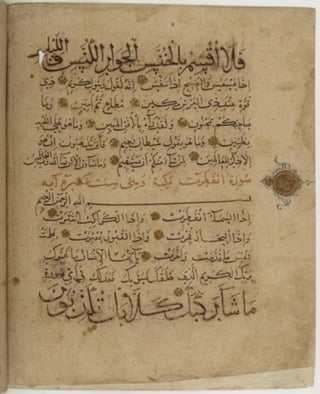 فلا اقسم بالخنس الجوار الكنس والليل
اذا عسعس والصبح اذا تنفس انه لقول رسول كريم ذي
قوة عند ذي العرش مكين مطاع ثم امين وما
صاحبكم بمجنون ولقد رآه بالافق المبين وما هو على الغيب
بظنين وما هو بقول شيطان رجيم فاين تذهبون ان هو
الا ذكر للعالمين لمن شاء منكم ان يستقيم وما تشاؤن الا ان يشاء الله رب العالمين
سورة انفطرت مكية وهي تسع عشرة آية
بسم الله الرحمن الرحيم
اذا السماء انفطرت واذا الكواكب انتثرت
واذا البحار فجرت واذا القبور بعثرت علمت
نفس ما قدمت واخرت يا ايها الانسان ما غرك
بربك الكريم الذي خلقك فسويك فعدلك في اي صورة
ما شاء ركبك كلا بل تكذبون